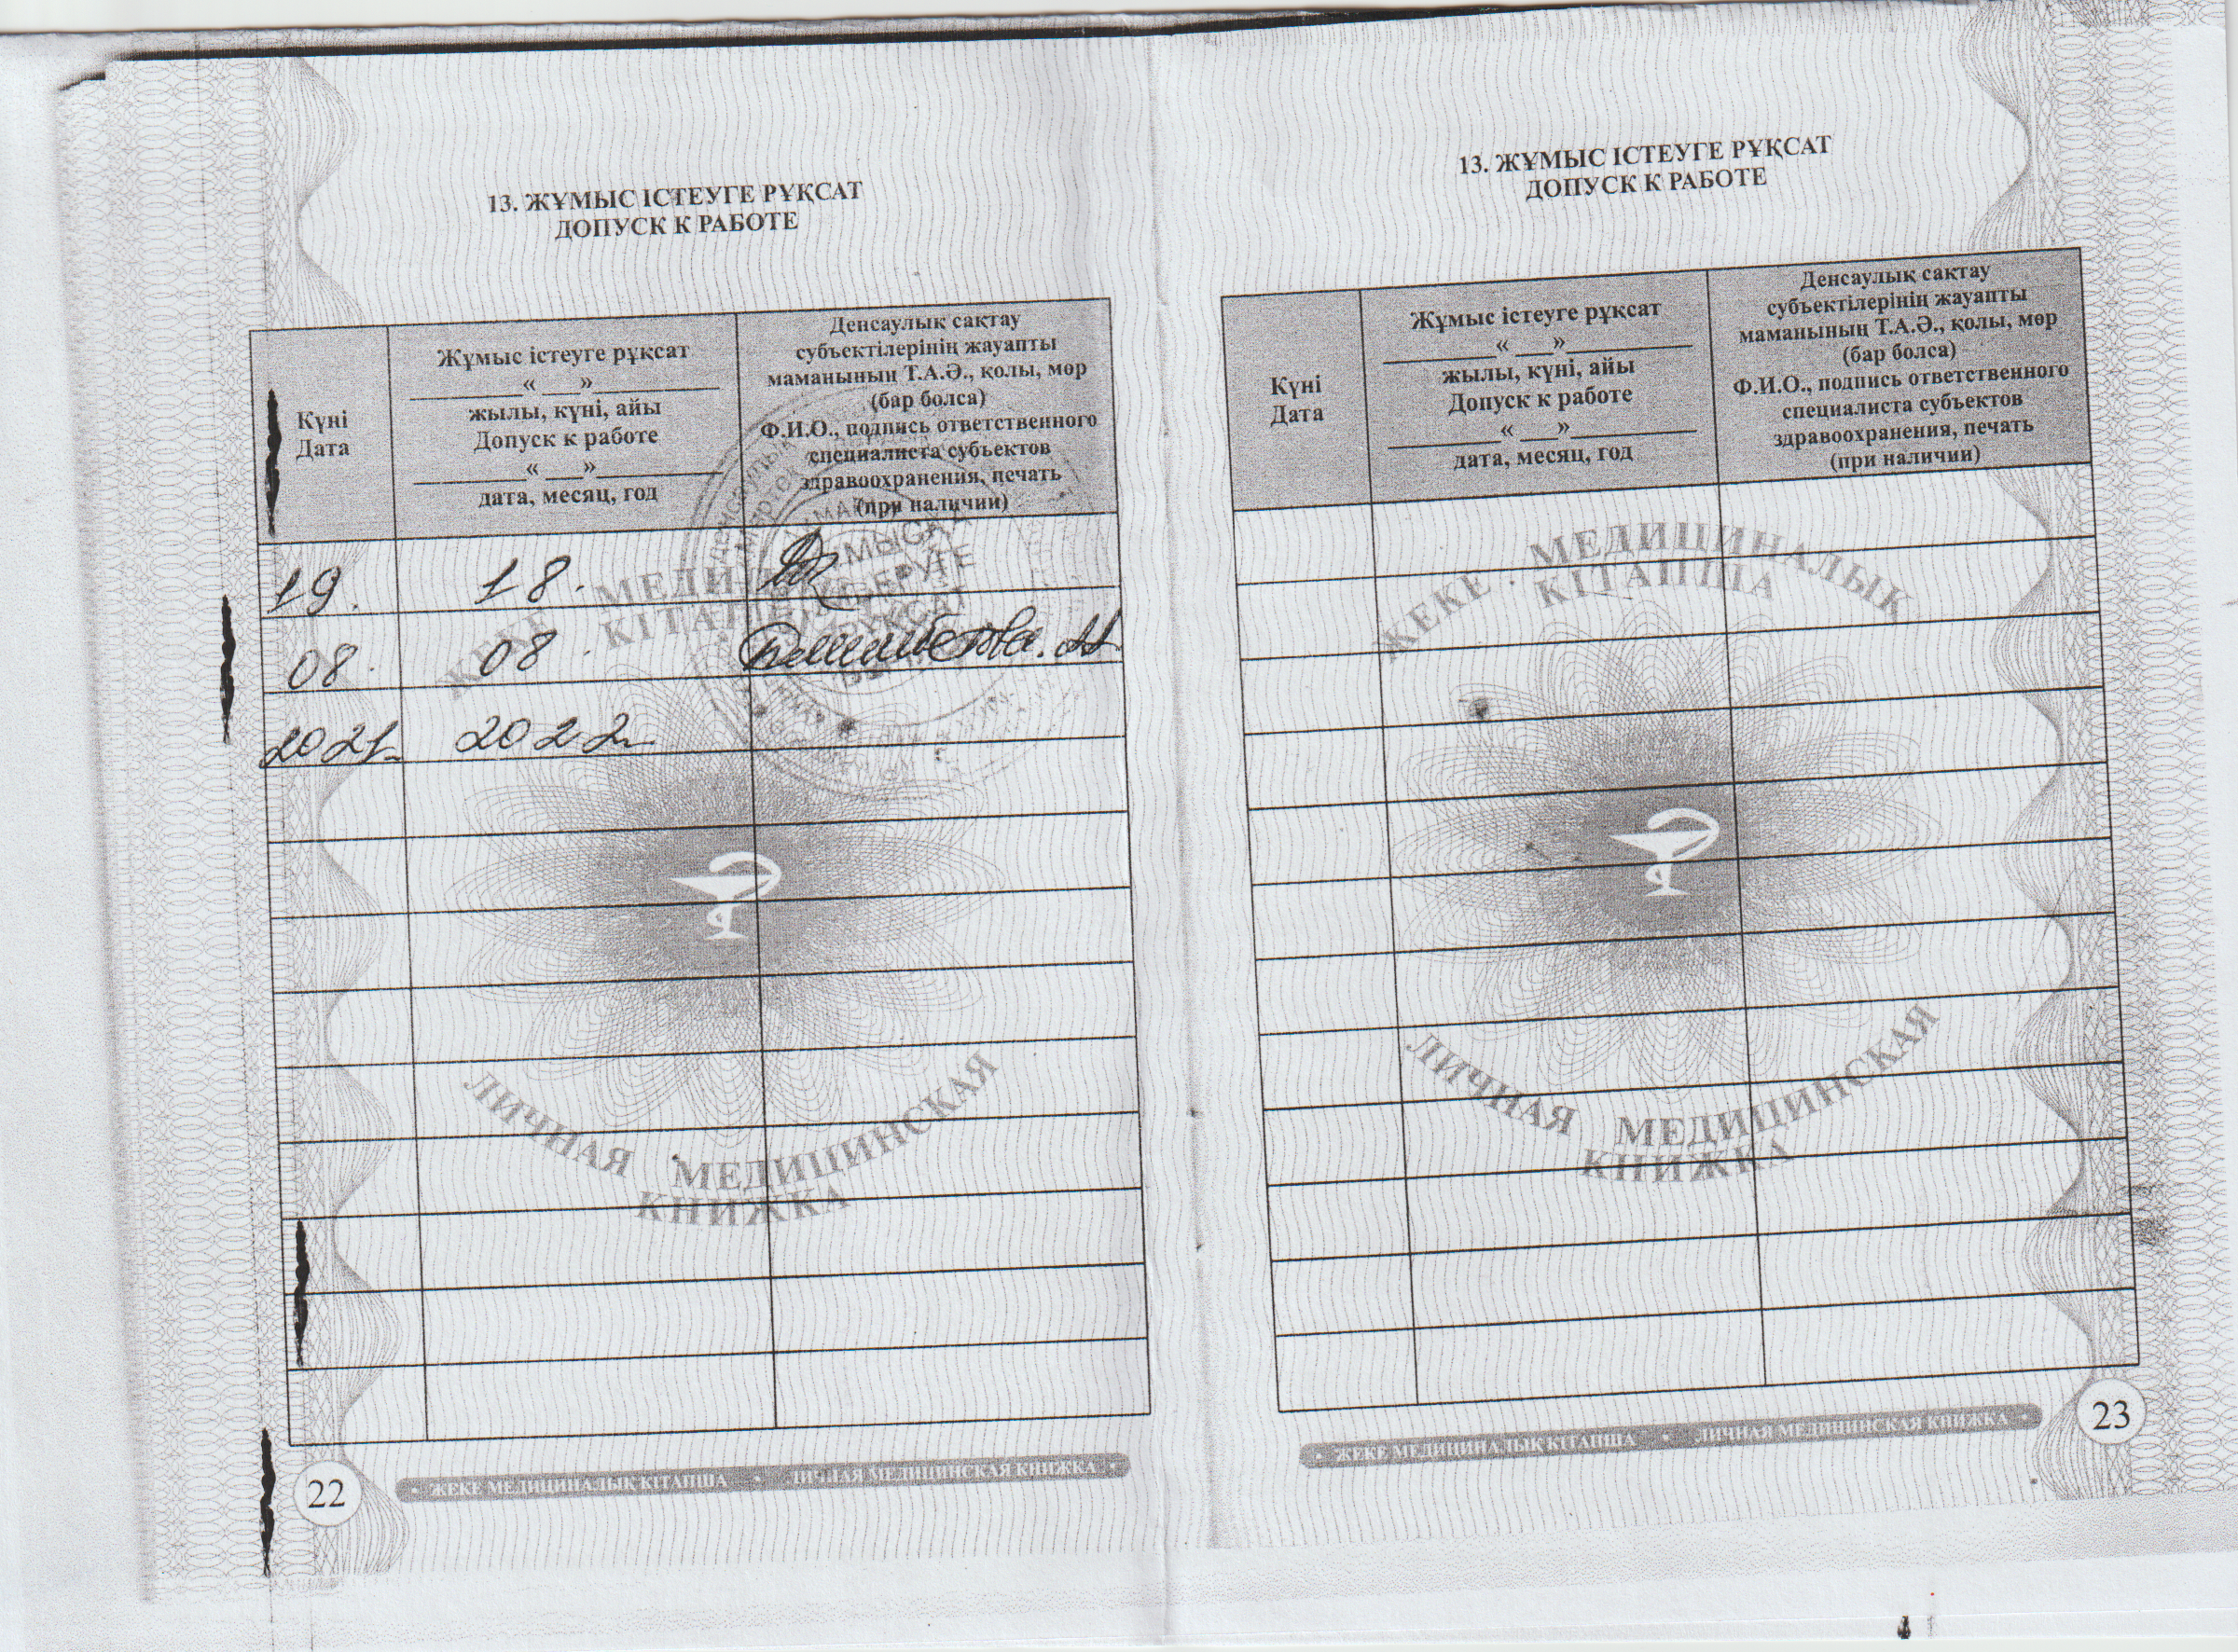 13. ЖҰМЫС ІСТЕУГЕ РҰҚСАТ
ДОПУСК К РАБОТЕ
Күні
Дата
Жұмыс істеуге рұқсат
_________« ___»__________
жылы, күні, айы
Допуск к работе
_________« ___»__________
дата, месяц, год
Денсаулық сақтау
субъектілерінің жауапты
маманының Т.А.Ә., қолы, мөр
(бар болса)
Ф.И.О., подпись ответственного
специалиста субъектов
здравоохранения, печать
(при наличии)
19. 18.
08. 08.
2021 2022
ЖҰМЫСҚА
ЖІБЕРУГЕ
РҰҚСАТ
ЖЕКЕ МЕДИЦИНАЛЫҚ
КІТАПША
ЛИЧНАЯ МЕДИЦИНСКАЯ
КНИЖКА
22
• ЖЕКЕ МЕДИЦИНАЛЫҚ КІТАПША • ЛИЧНАЯ МЕДИЦИНСКАЯ КНИЖКА •
13. ЖҰМЫС ІСТЕУГЕ РҰҚСАТ
ДОПУСК К РАБОТЕ
Күні
Дата
Жұмыс істеуге рұқсат
_________« ___»__________
жылы, күні, айы
Допуск к работе
_________« ___»__________
дата, месяц, год
Денсаулық сақтау
субъектілерінің жауапты
маманының Т.А.Ә., қолы, мөр
(бар болса)
Ф.И.О., подпись ответственного
специалиста субъектов
здравоохранения, печать
(при наличии)
ЖЕКЕ МЕДИЦИНАЛЫҚ
КІТАПША
ЛИЧНАЯ МЕДИЦИНСКАЯ
КНИЖКА
• ЖЕКЕ МЕДИЦИНАЛЫҚ КІТАПША • ЛИЧНАЯ МЕДИЦИНСКАЯ КНИЖКА •
23